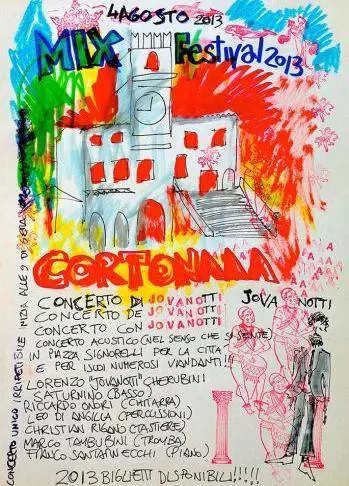 4 AGOSTO 2013
MIX Festival 2013
CORTONAAA
CONCERTO DI JOVANOTTI
CONCERTO DE JOVANOTTI
CONCERTO CON JOVANOTTI
CONCERTO ACUSTICO (NEL SENSO CHE SI SENTE)
IN PIAZZA SIGNORELLI PER LA CITTA
E PER I SUOI NUMEROSI VIANDANTI!!!
LORENZO "JOVANOTTI" CHERUBINI
SATURNINO (BASSO)
RICCARDO ONORI (CHITARRA)
LEO DI ANGILLA (PERCUSSIONI)
CHRISTIAN RIGANO (TASTIERE)
MARCO TAMBURINI (TROMBA)
FRANCO SANTARNECCHI (PIANO)
2013 BIGLIETTI DISPONIBILI!!!!!
JOVANOTTI
CONCERTO UNICO IRRIPETIBILE INIZIA ALLE 9 DI SERA